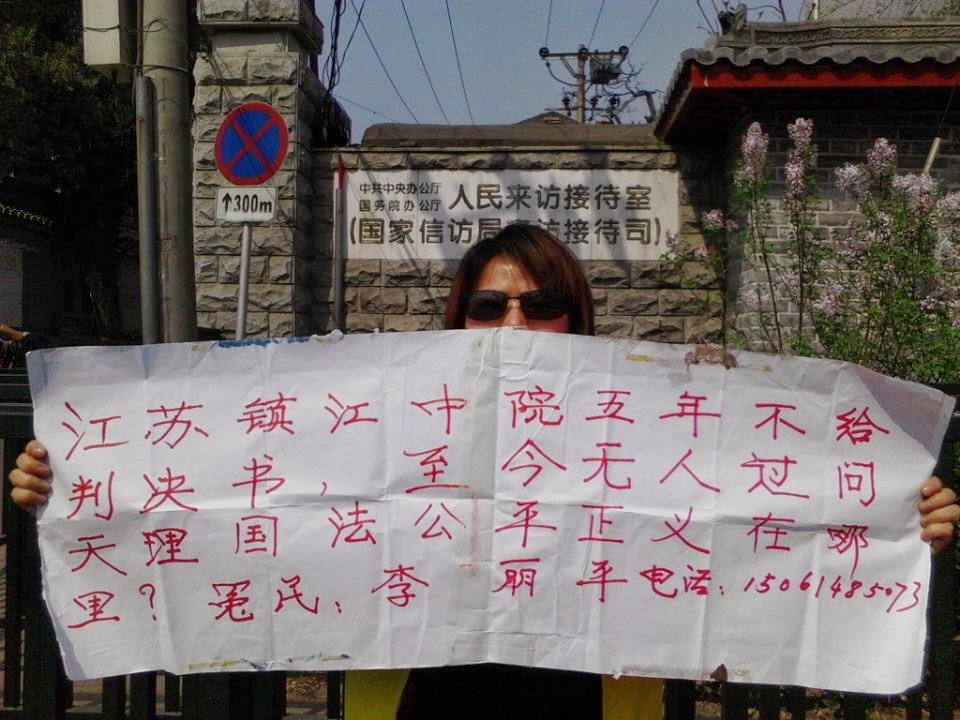 ↑300m
中共中央办公厅
国务院办公厅
人民来访接待室
(国家信访局 访接待司)
江苏镇江中院五年不给
判决书,至今无人过问
天理国法公平正义在哪
里?冤民:李丽平电话:15061485073